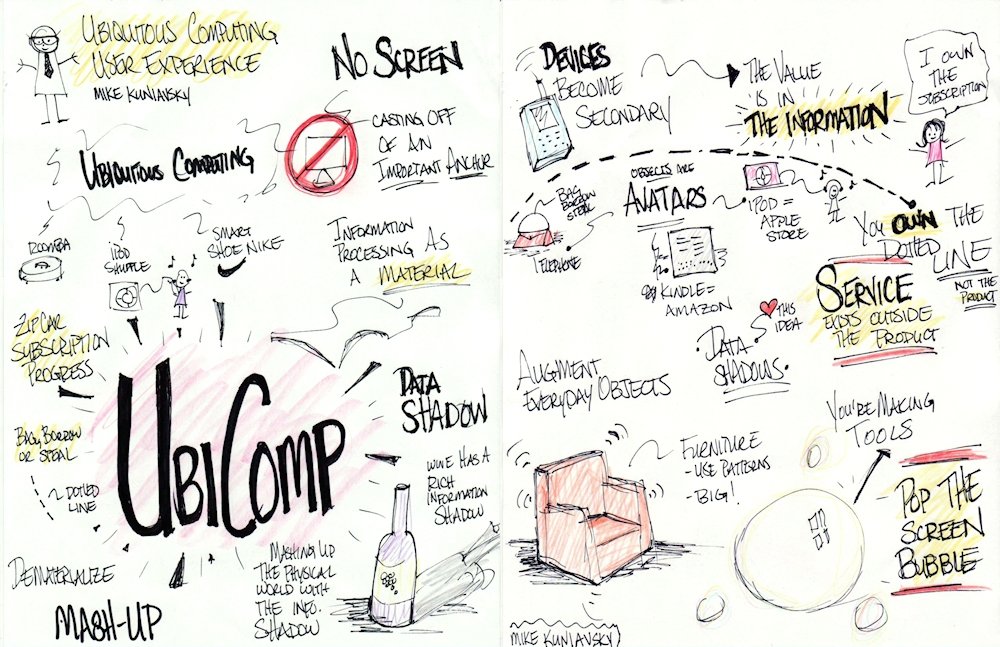 UBIQUITOUS COMPUTING
USER EXPERIENCE
MIKE KUNIAVSKY
NO SCREEN
CASTING OFF
OF AN
IMPORTANT ANCHOR
UBIQUITOUS COMPUTING
ROOMBA
IPOD
SHUFFLE
SMART
SHOE NIKE
INFORMATION
PROCESSING AS
A MATERIAL
ZIPCAR
SUBSCRIPTION
PROGRESS
UBICOMP
DATA
SHADOW
BAG, BORROW
OR STEAL
DOTTED
LINE
WINE HAS A
RICH
INFORMATION
SHADOW
DEMATERIALIZE
MASH-UP
MASHING UP
THE PHYSICAL
WORLD WITH
THE INFO.
SHADOW
DEVICES
BECOME
SECONDARY
THE VALUE
IS IN
THE INFORMATION
I OWN
THE
SUBSCRIPTION
BAG
BORROW
STEAL
TELEPHONE
OBJECTS ARE
AVATARS
IPOD =
APPLE
STORE
KINDLE =
AMAZON
YOU OWN THE
DOTTED
LINE
NOT THE
PRODUCT
SERVICE
EXISTS OUTSIDE
THE PRODUCT
THIS
IDEA
DATA
SHADOWS
AUGMENT
EVERYDAY OBJECTS
FURNITURE
- USE PATTERNS
- BIG!
YOU'RE MAKING
TOOLS
POP THE
SCREEN
BUBBLE
MIKE KUNIAVSKY